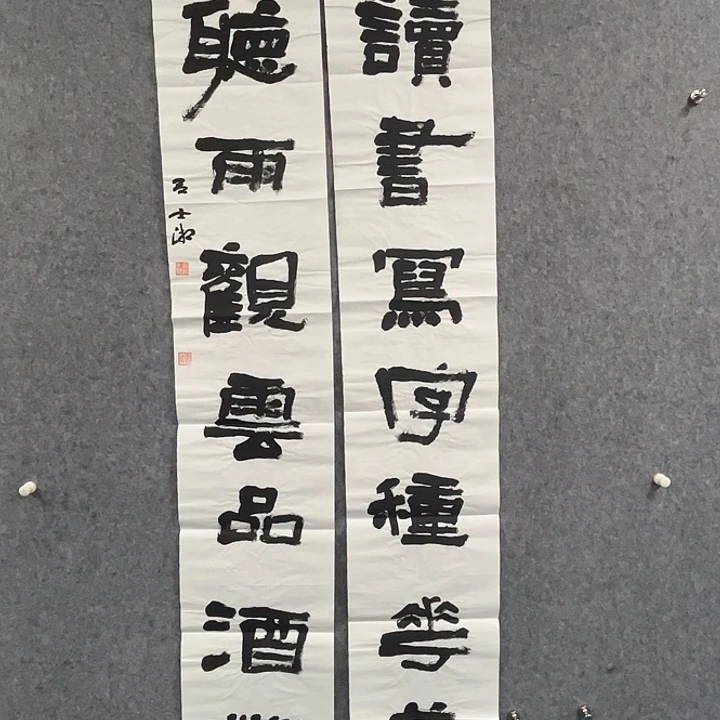 讀書寫字種花
聽雨觀雲品酒
呂士湘